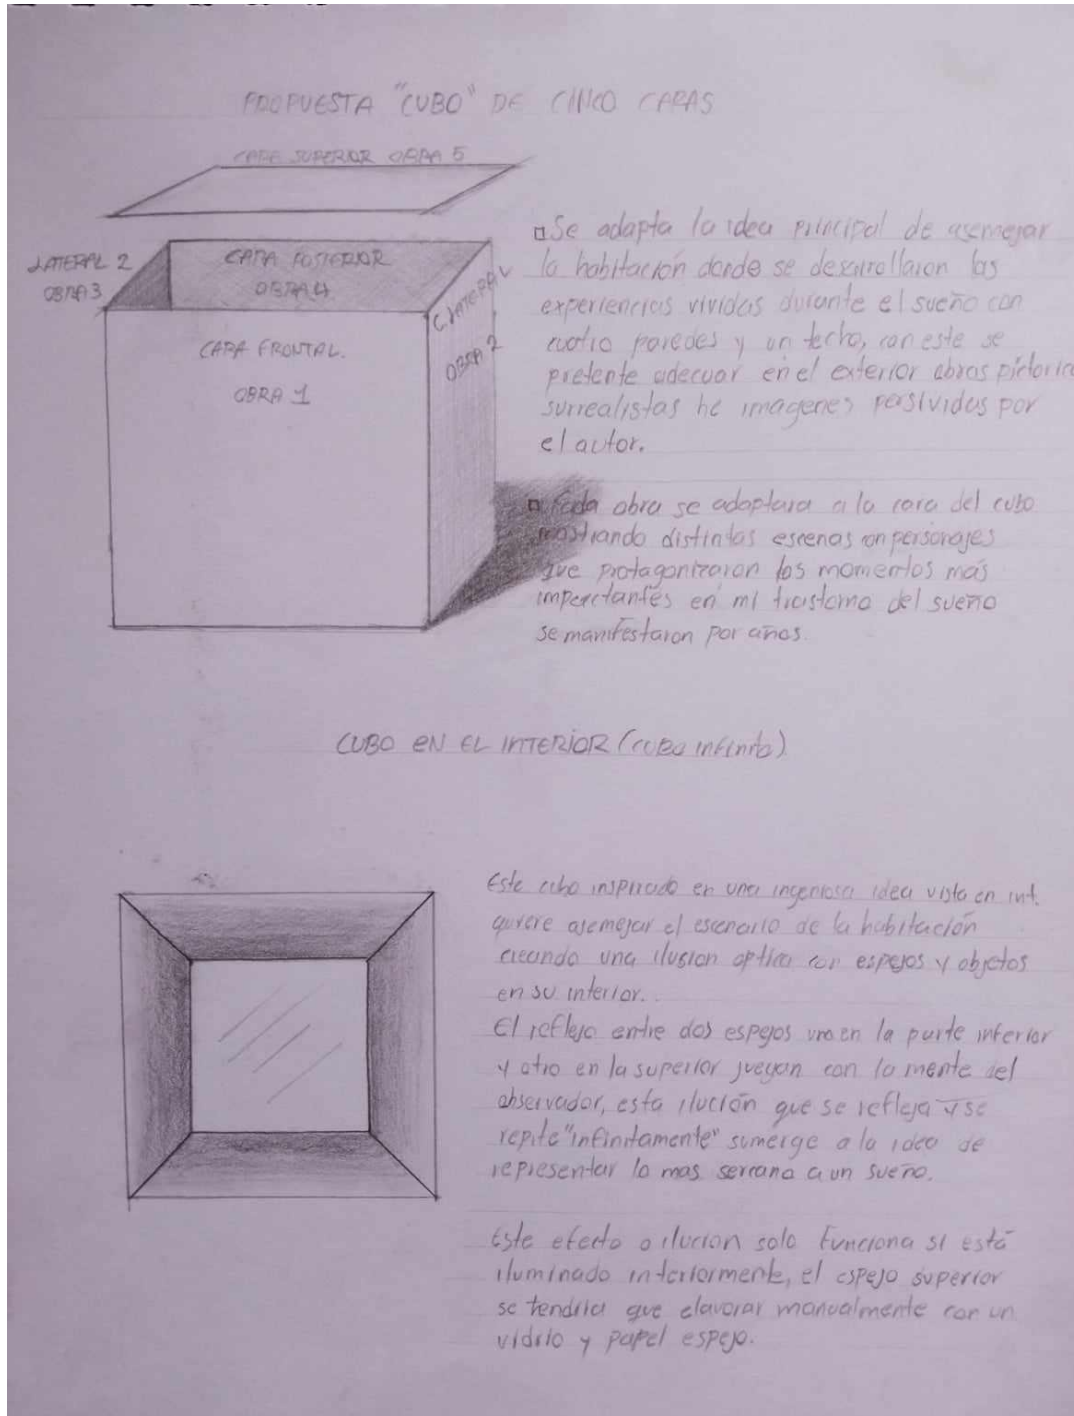 PROPUESTA "CUBO" DE CINCO CARAS
CARA SUPERIOR OBRA 5
LATERAL 2
OBRA 3
CARA POSTERIOR
OBRA 4
C. LATERAL
OBRA 2
CARA FRONTAL.
OBRA 1
Se adapta la idea principal de asemejar
la habitación donde se desarrollaron las
experiencias vividas durante el sueño con
cuatro paredes y un techo, con este se
pretente adecuar en el exterior obras pictorica
surrealistas he imagenes persividas por
el autor.
Cada obra se adaptara a la cara del cubo
mostrando distintas escenas con personajes
que protagonizaron los momentos más
impactantes en mi trastorno del sueño
se manifestaron por años.
CUBO EN EL INTERIOR (CUBO infinito)
Este cubo inspirado en una ingeniosa idea vista en int.
quiere asemejar el escenario de la habitación
creando una ilusion optica con espejos y objetos
en su interior.
El reflejo entre dos espejos uno en la parte inferior
y otro en la superior juegan con la mente del
observador, esta ilución que se refleja y se
repite "infinitamente" sumerge a la idea de
representar lo mas sercano a un sueño.
Este efecto o ilucion solo funciona si está
iluminado interiormente, el espejo superior
se tendria que elavorar manualmente con un
vidrio y papel espejo.